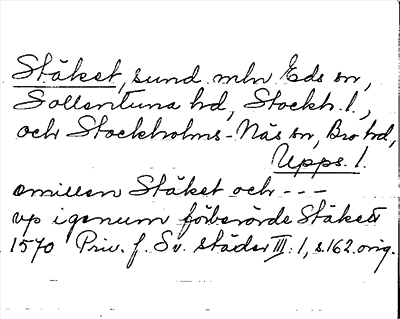 Stäket, sund mln Eds sn,
Sollentuna hd, Stockh. l.,
och Stockholms-Näs sn, Bro hd,
Upps. l.
emillen Stäket och ---
vp igenum förberörde Stäket
1570 Priv. f. Sv. städer III: 1, s. 162. orig.